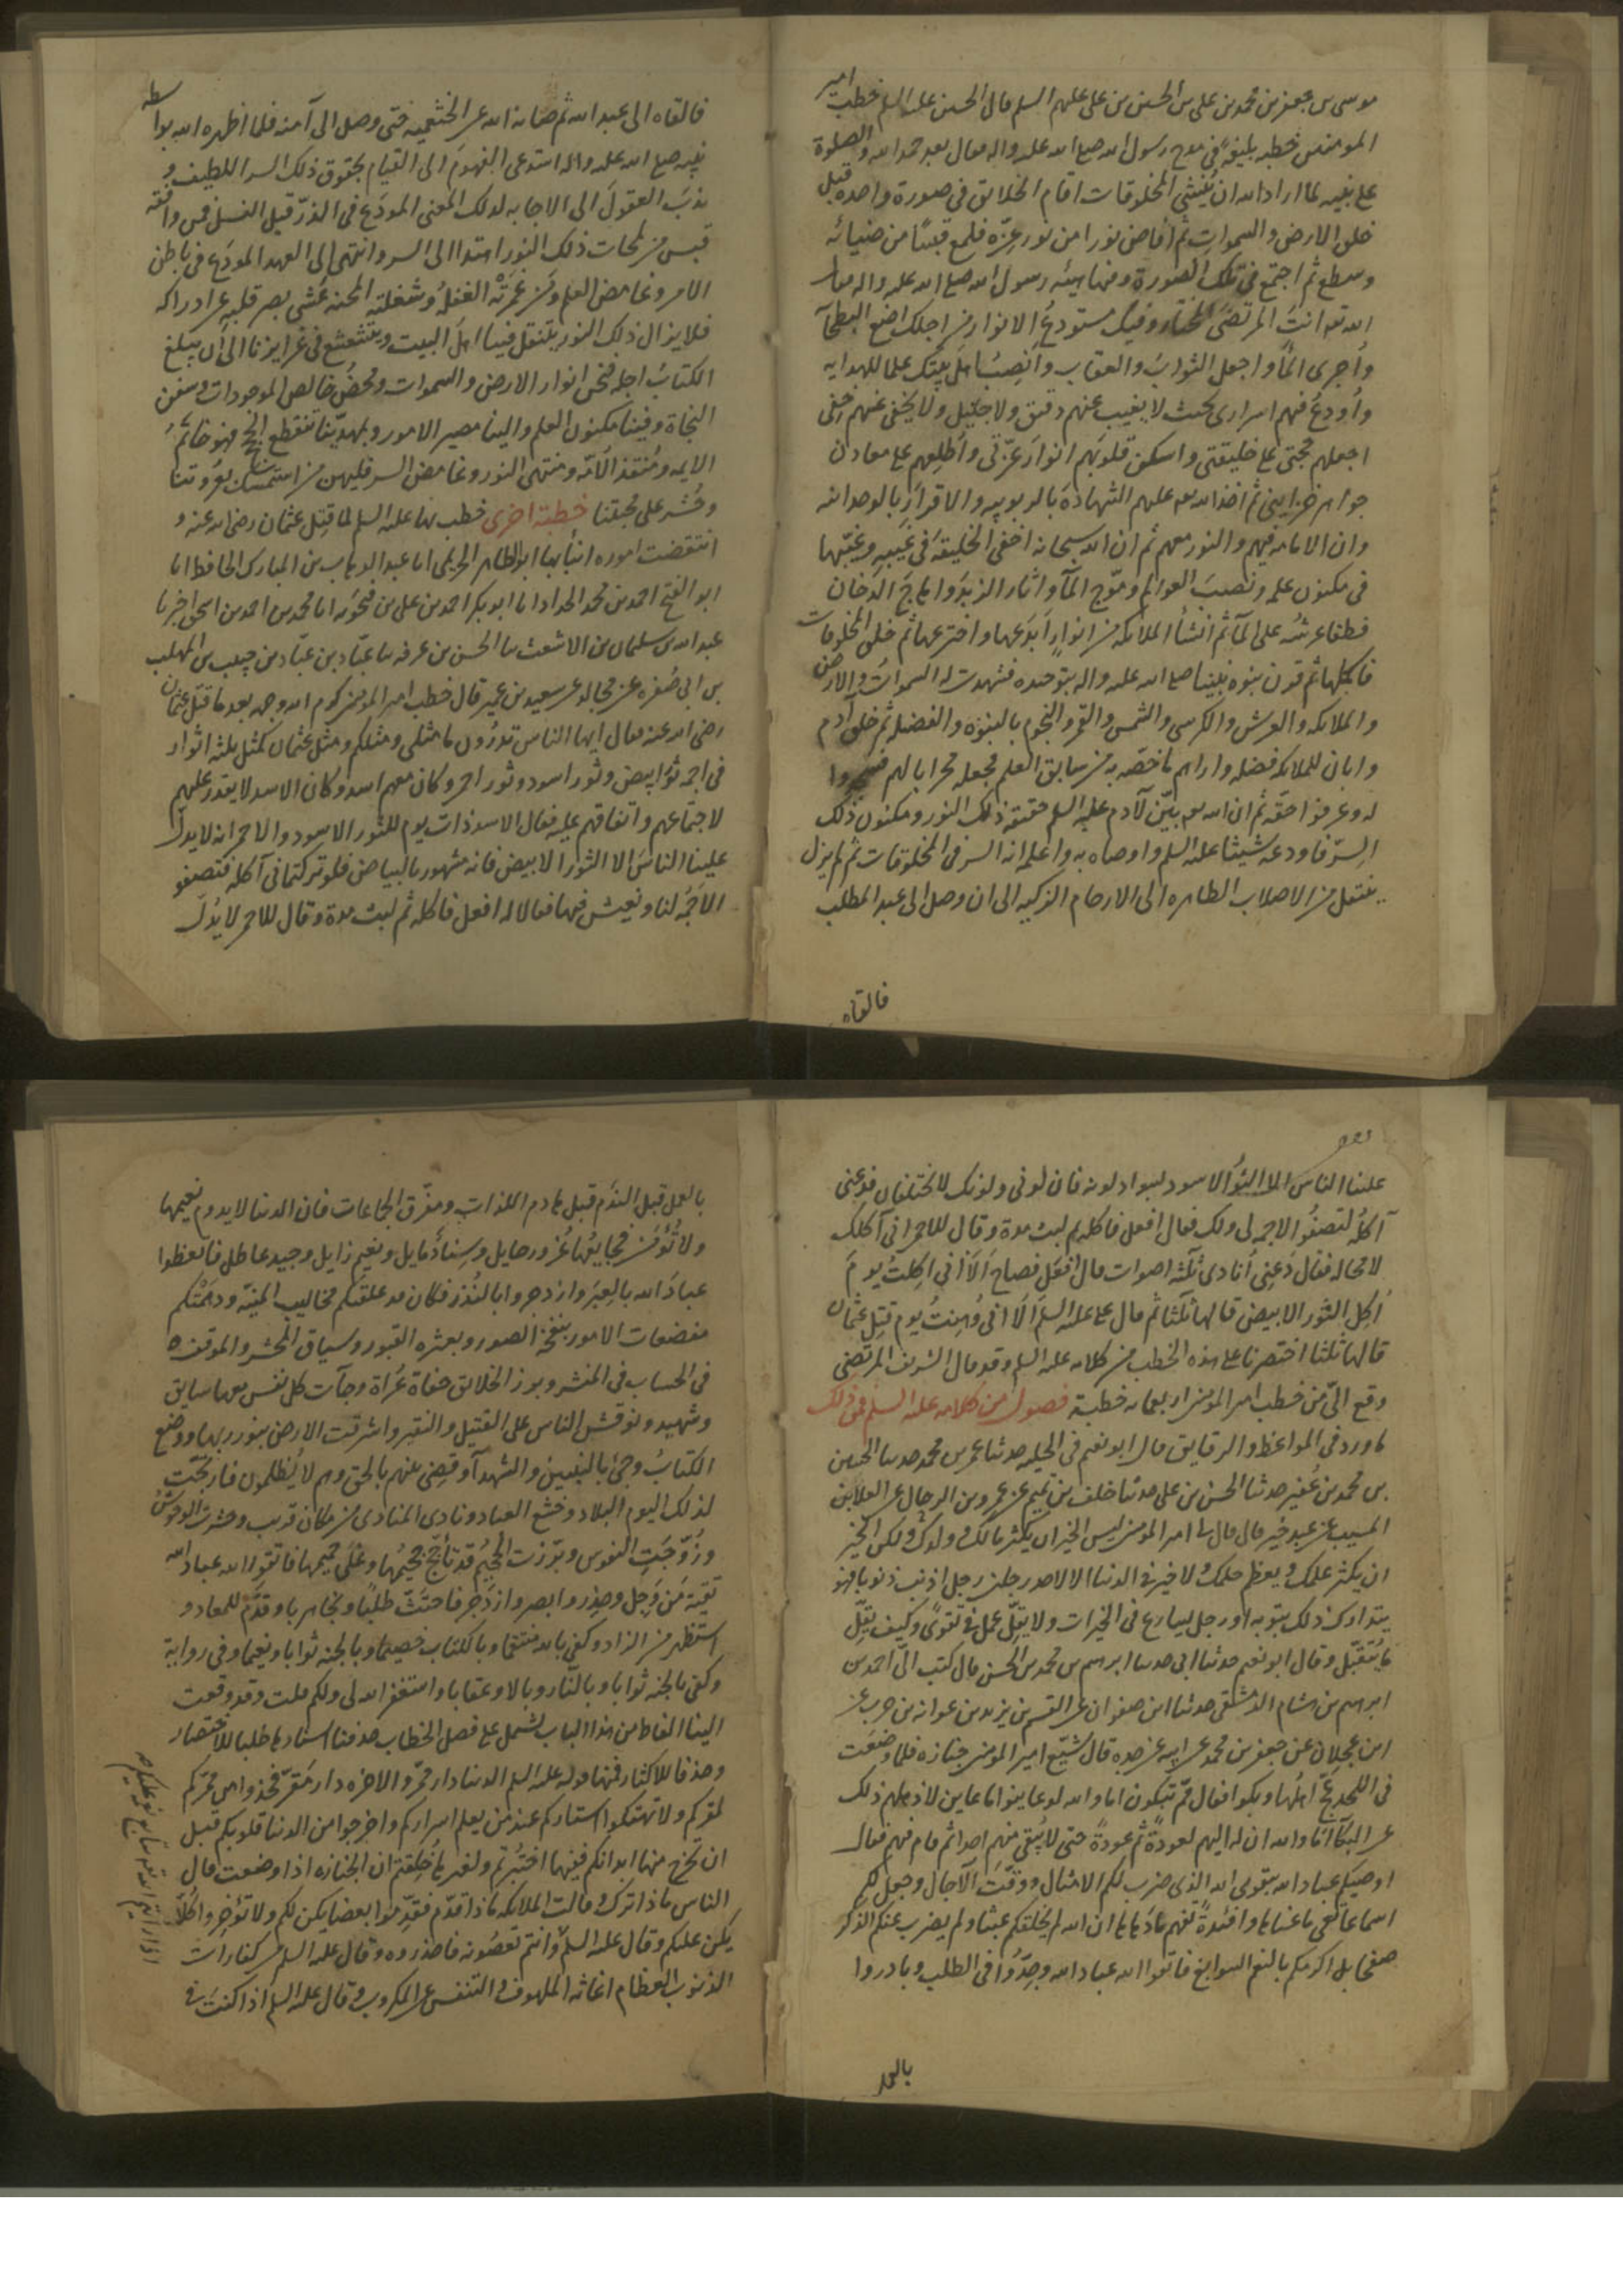 موسى بن جعفر بن محمد بن على بن الحسين بن على عليهم السلم قال الحسين عليه السلم خطب امير
المومنين خطبه بليغة فى مدح رسول الله صلى الله عليه واله فقال بعد حمد الله والصلوة
على نبيه لما اراد الله ان ينشئ المخلوقات اقام الخلائق فى صورة واحده قبل
خلق الارض والسموات ثم افاض نورا من نور عزه فلمع قبسا من ضيائه
وسطع ثم اجتمع فى تلك الصورة وفيها هيئه رسول الله صلى الله عليه واله فقال
الله تعه انت المرتضى المختار وفيك مستودع الانوار من اجلك اضع البطحآ
واجرى المآ واجعل الثواب والعقاب وانصب اهل بيتك علما للهدايه
واودع فيهم اسرارى بحيث لا يغيب عنهم دقيق ولا جليل ولا يخفى عنهم خفى
اجعلهم حجتى على خليقتى واسكن قلوبهم انوار عزتى واطلعهم على معادن
جواهر خزاينى ثم اخذ الله تعه عليهم الشهادة بالربوبيه والاقرار بالوحدانيه
وان الامامه فيهم والنور معهم ثم ان الله سبحانه اخفى الخليقة فى غيبه وغيبها
فى مكنون علمه ونصب العوالم وموج المآ واثار الزبد واهاج الدخان
فطفا عرشه على المآ ثم انشأ الملائكه من انوار ابدعها واخترعها ثم خلق المخلوقات
فاكملها ثم قرن بتوحيده نبوة نبينا صلى الله عليه واله فشهدت له السموات والارض
والملائكه والعرش والكرسى والشمس والقمر والنجوم بالنبوة والفضيله ثم خلق آدم
وابان للملائكه فضله واراهم ما خصه به من سابق العلم فجعله محرابا لهم فسجدوا
له وعرفوا حقه ثم ان الله تعه بين لآدم عليه السلم حقيقة ذلك النور ومكنون ذلك
السر فاودعه شيثا عليه السلم واوصاه به واعلمه انه السر فى المخلوقات ثم لم يزل
ينتقل من الاصلاب الطاهره الى الارحام الزكيه الى ان وصل الى عبد المطلب
فالقاه
فالقاه الى عبد الله ثم صانه الله عن الخثعميه حتى وصل الى آمنه فلما اظهره الله بواسطه
نبيه صلى الله عليه واله استدعى الفهوم الى القيام بحقوق ذلك السر اللطيف و
ندب العقول الى الاجابه لذلك المعنى المودع فى الذر قبل النسل فمن وافقه
قبس من لمحات ذلك النور اهتدا الى السر وانتهى الى العهد المودع فى باطن
الامر وغامض العلم ومن غمرته الغفلة وشغلته المحنه عشى بصر قلبه عن ادراكه
فلا يزال ذلك النور ينتقل فينا اهل البيت ويتشعشع فى غرايزنا الى ان يبلغ
الكتاب اجله فنحن انوار الارض والسموات ومحض خالص الموجودات وسفن
النجاة وفينا مكنون العلم والينا مصير الامور وبمهدينا تنقطع الحجج فهو خاتم
الايمه ومنقذ الامه ومنتهى النور وغامض السر فليهن من استمسك بعروتنا
وحشر على محبتنا خطبة اخرى خطب بها عليه السلم لما قتل عثمان رضى الله عنه و
انتقضت اموره انبأنا بها ابو الطاهر الحريمى انا عبد الوهاب بن المبارك الحافظ انا
ابو الفتح احمد بن محمد الحداد انا ابو بكر احمد بن على بن منجويه انا محمد بن احمد بن اسحق اخبرنا
عبد الله بن سليمان بن الاشعث سا الحسن بن عرفه سا عباد بن عباد بن حبيب بن المهلب
بن ابى صفره عن مجالد عن سعيد بن عمير قال خطب امير المومنين كرم الله وجهه بعد ما قتل عثمان
رضى الله عنه فقال ايها الناس تدرون ما مثلى ومثلكم ومثل عثمان كمثل ثلثه اثوار
فى اجمه ثور ابيض وثور اسود وثور احمر وكان معهم اسد وكان الاسد لا يقدر عليهم
لاجتماعهم واتفاقهم عليه فقال الاسد ذات يوم للثور الاسود والاحمر انه لا يدل
علينا الناس الا الثور الابيض فانه مشهور بالبياض فلو تركتمانى آكله فتصفو
الاجمه لنا ونعيش فيها فقالا له افعل فاكله ثم لبث مدة وقال للاحمر لا يدل
علينا الناس الا الثور الاسود لسواد لونه فان لونى ولونك لا يختلفان فدعنى
آكله لتصفو الاجمه لى ولك فقال افعل فاكله ثم لبث مدة وقال للاحمر انى آكلك
لا محاله فقال دعنى انادى ثلثه اصوات قال افعل فصاح الا انى اكلت يوم
اكل الثور الابيض قالها ثلثا ثم قال على عليه السلم الا انى وهنت يوم قتل عثمان
قالها ثلثا اختصرنا على هذه الخطب من كلامه عليه السلم وقد قال الشريف المرتضى
وقع الى من خطب امير المومنين اربعمائه خطبة فصول من كلامه عليه السلم فمن ذلك
ما ورد فى المواعظ والرقايق قال ابو نعيم فى الحليه حدثنا عمر بن محمد حدثنا الحسين
بن محمد بن عفير حدثنا الحسن بن على حدثنا خلف بن تميم عن عمرو بن الرجال عن العلا بن
المسيب عن عبد خير قال قال لى امير المومنين ليس الخير ان يكثر مالك وولدك ولكن الخير
ان يكثر علمك ويعظم حلمك ولا خير فى الدنيا الا لاحد رجلين رجل اذنب ذنوبا فهو
يتدارك ذلك بتوبه او رجل يسارع فى الخيرات ولا يقل عمل فى تقوى وكيف يقل
ما يتقبل وقال ابو نعيم حدثنا ابى حدثنا ابراهيم بن محمد بن الحسن قال كتب الى احمد بن
ابراهيم بن هشام الدمشقى حدثنا ابن صفوان عن القسم بن يزيد بن عوانه بن حرب عن
ابن عجلان عن جعفر بن محمد عن ابيه عن جده قال شيع امير المومنين جنازه فلما وضعت
فى اللحد عج اهلها وبكوا فقال مم تبكون اما والله لو عاينوا ما عاين لاذهلهم ذلك
عن البكآ اما والله ان له اليهم لعودة ثم عودة حتى لا يبقى منهم احدا ثم قام فيهم فقال
اوصيكم عباد الله بتقوى الله الذى ضرب لكم الامثال ووقت الآجال وجعل لكم
اسماعا تعى ما عناها وافئدة تفهم ما دهاها ان الله لم يخلقكم عبثا ولم يضرب عنكم الذكر
صفحا بل اكرمكم بالنعم السوابغ فاتقوا الله عباد الله وجدوا فى الطلب وبادروا
بالعمل
بالعمل قبل الندم قبل هادم اللذات ومفرق الجماعات فان الدنيا لا يدوم نعيمها
ولا تؤمن فجايعها غرور حايل وسناد مايل ونعيم زايل وجيد عاطل فاتعظوا
عباد الله بالعبر وازدجروا بالنذر فكان قد علقتكم مخاليب المنيه ودهمتكم
مفضعات الامور بنفخة الصور وبعثره القبور وسياق المحشر والموقف
فى الحساب فى المنشر وبرز الخلائق حفاة عراة وجآت كل نفس معها سايق
وشهيد ونوقش الناس على الفتيل والنقير واشرقت الارض بنور ربها ووضع
الكتاب وجئ بالنبيين والشهدآ وقضى بينهم بالحق وهم لا يظلمون فارتجت
لذلك اليوم البلاد وخشع العباد ونادى المنادى من مكان قريب وحشرت الوحوش
وزوجت النفوس وبرزت الجحيم قد تأجج جحيمها وغلى حميمها فاتقوا الله عباد الله
تقية من وجل وحذر وابصر وازدجر فاحتث طلبا ونجا هربا وقدم للمعاد و
استظهر من الزاد وكفى بالله منتقما وبالكتاب خصيما وبالجنه ثوابا ونعيما وفى رواية
وكفى بالجنه ثوابا وبالنار وبالا وعقابا واستغفر الله لى ولكم قلت وقد وقعت
الينا الفاظ من هذا الباب تشتمل على فصل الخطاب حذفنا اسنادها طلبا للاختصار
وحذفا للاكثار فمنها قوله عليه السلم الدنيا دار ممر والاخره دار مقر فخذوا من ممركم
لمقركم ولا تهتكوا استاركم عند من يعلم اسراركم واخرجوا من الدنيا قلوبكم قبل
ان تخرج منها ابدانكم ففيها اختبرتم ولغيرها خلقتم ان الجنازه اذا وضعت قال
الناس ماذا ترك وقالت الملائكه ماذا قدم فقدموا بعضا يكن لكم ولا تؤخروا كلا
يكن عليكم وقال عليه السلم وانتم تعصونه فاحذروه وقال عليه السلم من كفارات
الذنوب العظام اغاثه الملهوف والتنفيس عن المكروب وقال عليه السلم اذا كنت فى